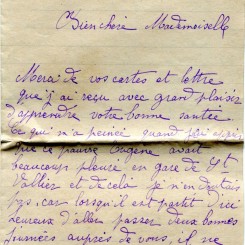 Bien chère Mademoiselle
Merci de vos cartes et lettre
que j'ai reçu avec grand plaisir
d'apprendre votre bonne santée
Ce qui m'a peinée quand j'ai appris
que ce pauvre Eugène avait
beaucoup pleuré en gare de St
Vallier et de cela je n'en doutais
pas car lorsqu'il est partit d'ici
heureux d'aller passer deux bonnes
journées auprès de vous, il ne